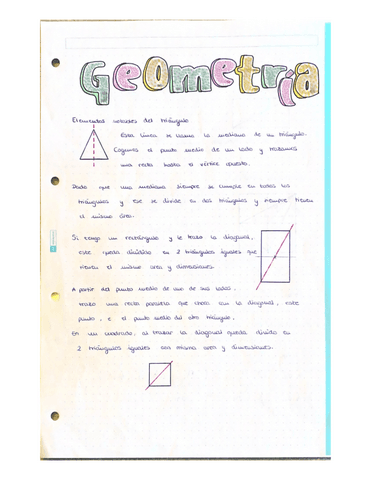 Geometría
Elementos notables del triángulo
Esta línea se llama la mediana de un triángulo.
Cogemos el punto medio de un lado y trazamos
una recta hasta el vértice opuesto.
Dado que una mediana siempre se cumple en todos los
triángulos y ese se divide en dos triángulos y siempre tienen
el mismo área.
Si tengo un rectángulo y le trazo la diagonal,
este queda dividido en 2 triángulos iguales que
tienen el mismo area y dimensiones.
A partir del punto medio de uno de sus lados,
trazo una recta paralela que choca con la diagonal, este
punto, e el punto medio del otro triángulo,
En un cuadrado, al trazar la diagonal queda dividido en
2 triángulos iguales con misma area y dimensiones.